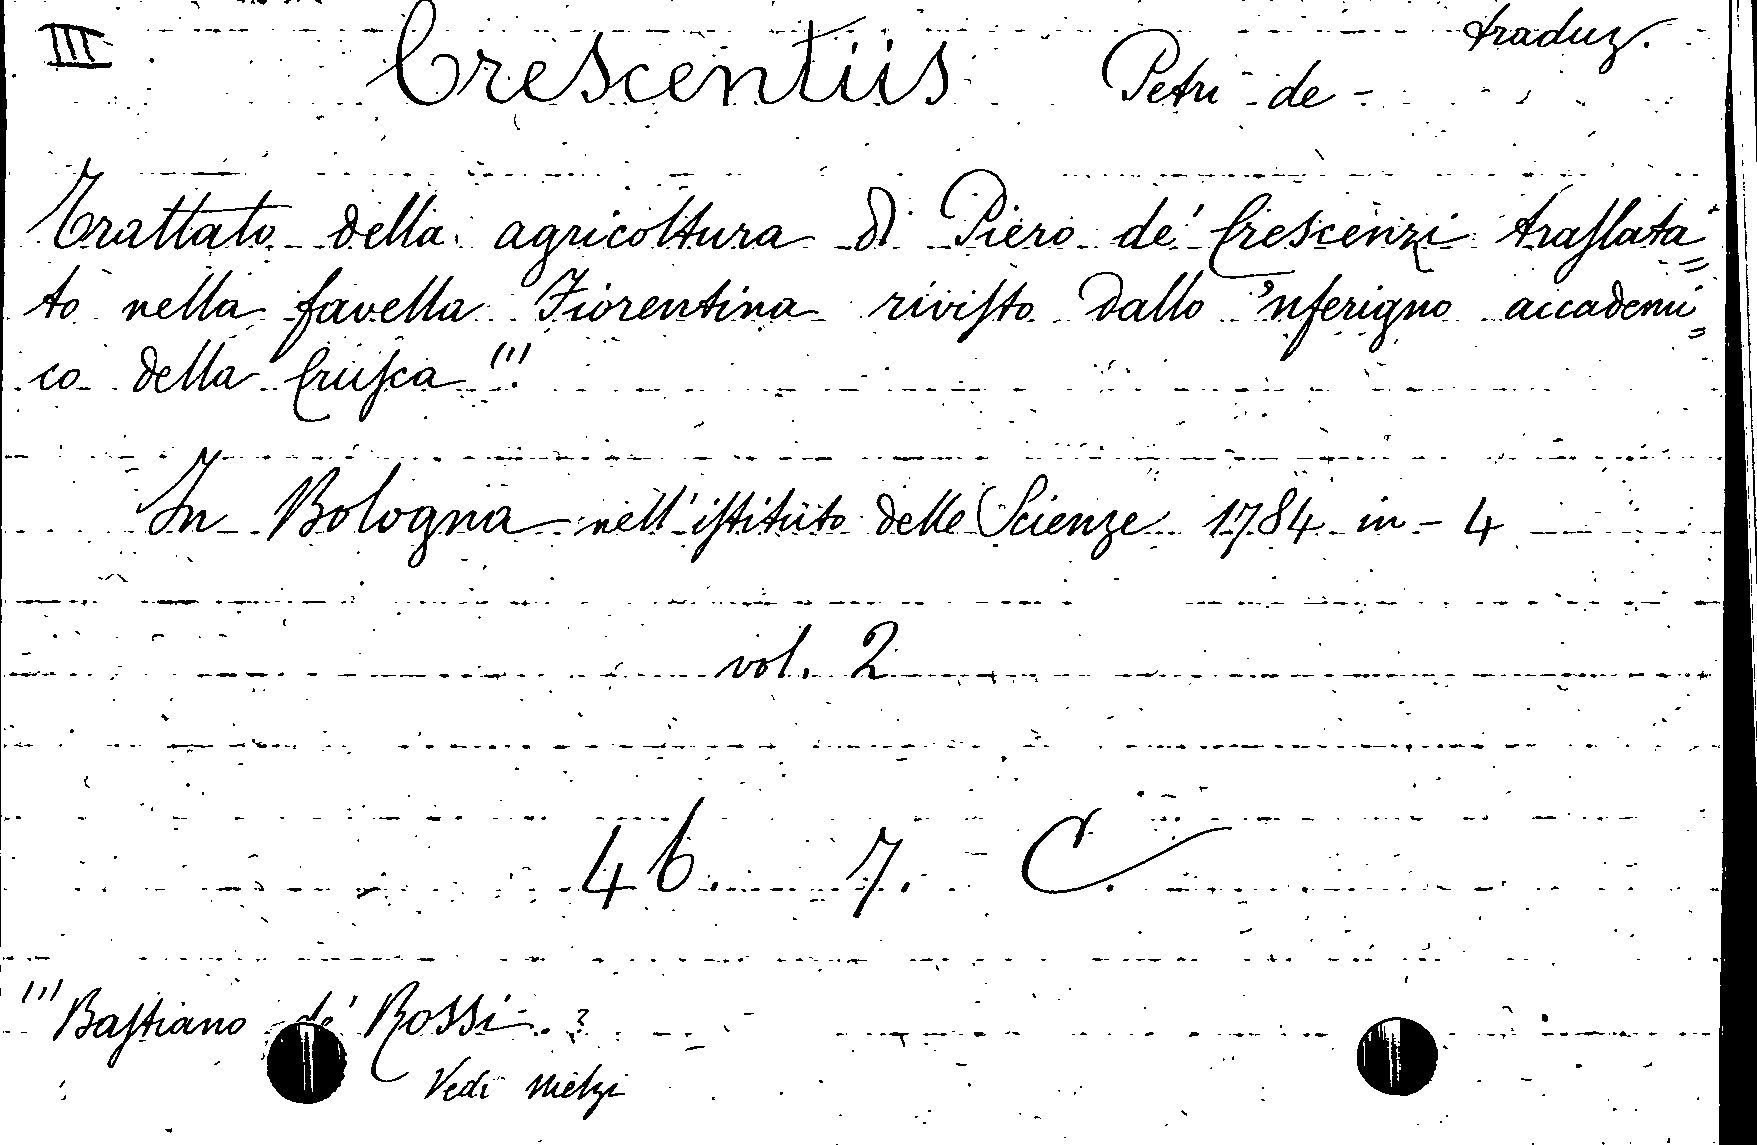 III Crescentiis Petri de - traduz.
Trattato della agricoltura di Piero de' Crescenzi traſlata=
to nella favella Fiorentina riviſto dallo 'nferigno accademi=
co della Cruſca (1)
In Bologna nell'iſtituto delle Scienze 1784 in-4
vol. 2
46. 7. C.
(1) Baſtiano de' Rossi. ?
Vedi Melzi